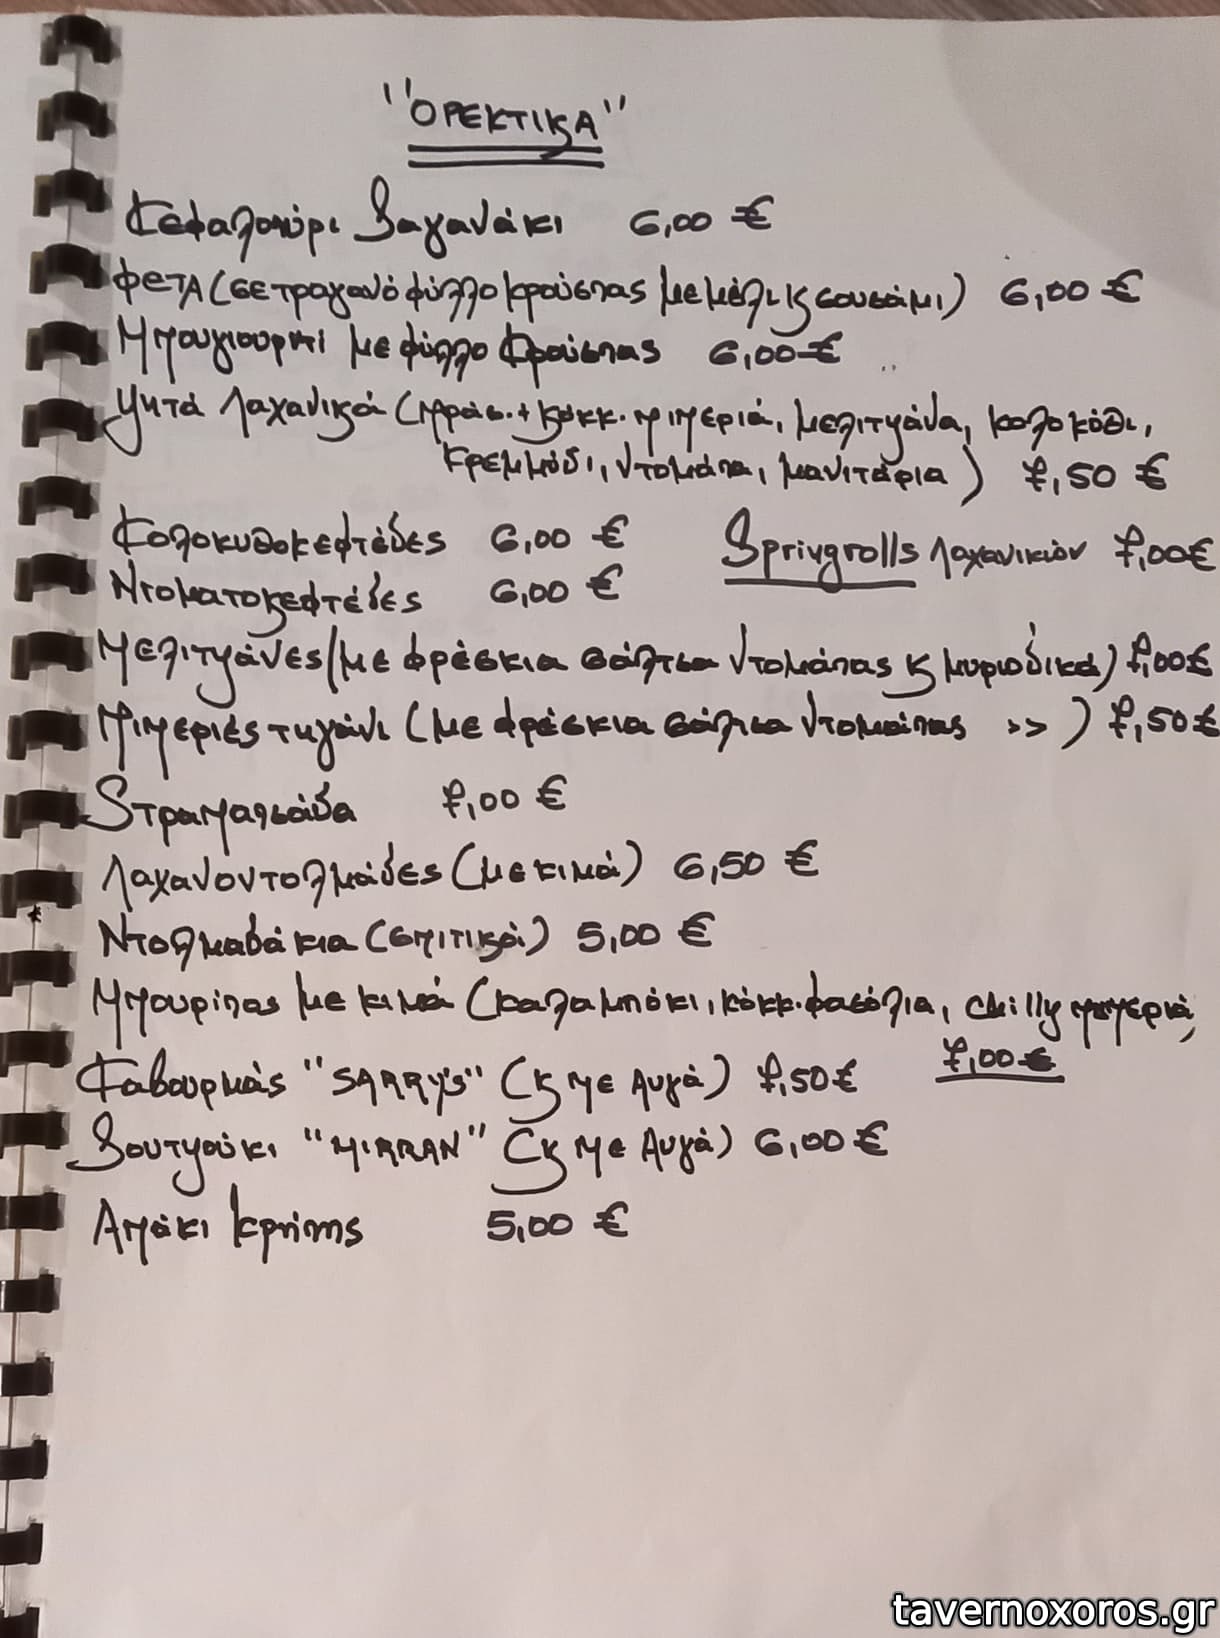 "ΟΡΕΚΤΙΚΑ"
Κεφαλοτύρι Σαγανάκι 6,00 €
ΦΕΤΑ (σε τραγανό φύλλο κρούστας με μέλι κ σουσάμι) 6,00 €
Μπουγιουρντί με φύλλο Κρούστας 6,00 €
Ψητά Λαχανικά (πράσ. + κόκκ. πιπεριά, μελιτζάνα, κολοκύθι,
κρεμμύδι, ντομάτα, μανιτάρια) 7,50 €
Κολοκυθοκεφτέδες 6,00 €
Springrolls λαχανικών 7,00 €
Ντοματοκεφτέδες 6,00 €
Μελιτζάνες (με φρέσκια σάλτσα ντομάτας κ μυριοδικά) 7,00 €
Πιπεριές τηγάνι (με φρέσκια σάλτσα ντομάτας >>) 7,50 €
Στραπατσάδα 7,00 €
Λαχανοντολμάδες (με κιμά) 6,50 €
Ντολμαδάκια (σπιτικά) 5,00 €
Μπουρίτος με κιμά (καλαμπόκι, κόκκ. φασόλια, chilly πιπεριά)
7,00 €
Καβουρμάς "SARRY'S" (κ με Αυγά) 7,50 €
Σουτζούκι "MIRRAN" (κ με Αυγά) 6,00 €
Απάκι Κρήτης 5,00 €
tavernoxoros.gr